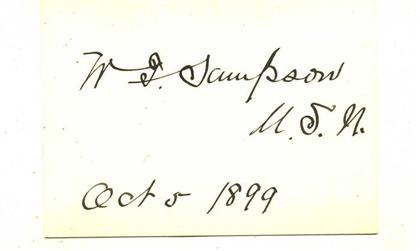 W T. Sampson
U. S. N.
Oct 5 1899